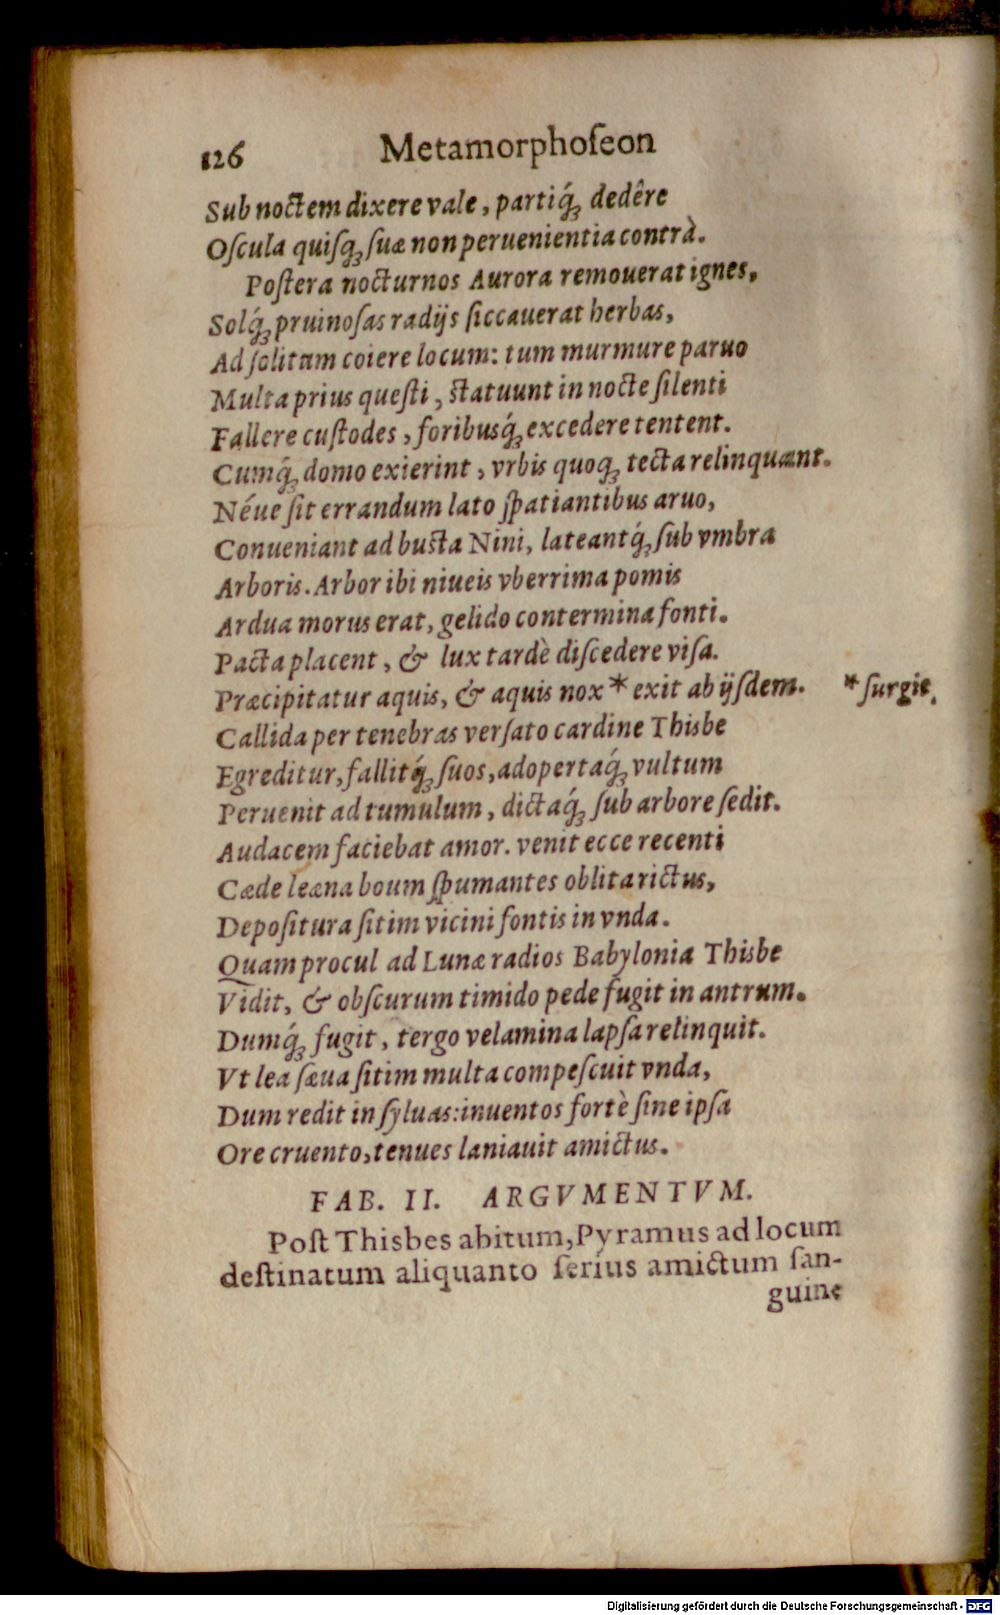 126 Metamorphoſeon
Sub noctem dixere vale, partiq́ꝫ dedêre
Oſcula quiſqꝫ ſuæ non peruenientia contrà.
Poſtera nocturnos Aurora remouerat ignes,
Solq́ꝫ pruinoſas radijs ſiccauerat herbas,
Ad ſolitum coiere locum: tum murmure paruo
Multa prius queſti, ſtatuunt in nocte ſilenti
Fallere cuſtodes, foribusq́ꝫ excedere tentent.
Cumq́ꝫ domo exierint, vrbis quoqꝫ tecta relinquant.
Néue ſit errandum lato ſpatiantibus aruo,
Conueniant ad buſta Nini, lateantq́ꝫ ſub vmbra
Arboris. Arbor ibi niueis vberrima pomis
Ardua morus erat, gelido contermina fonti.
Pacta placent, & lux tardè diſcedere viſa.
Præcipitatur aquis, & aquis nox * exit ab ijſdem. * ſurgit.
Callida per tenebras verſato cardine Thisbe
Egreditur, fallitq́ꝫ ſuos, adopertaq́ꝫ vultum
Peruenit ad tumulum, dictaq́ꝫ ſub arbore ſedit.
Audacem faciebat amor. venit ecce recenti
Cæde leæna boum ſpumantes oblita rictus,
Depoſitura ſitim vicini fontis in vnda.
Quam procul ad Lunæ radios Babylonia Thisbe
Vidit, & obſcurum timido pede fugit in antrum.
Dumq́ꝫ fugit, tergo velamina lapſa relinquit.
Vt lea ſæua ſitim multa compeſcuit vnda,
Dum redit in ſyluas: inuentos fortè ſine ipſa
Ore cruento, tenues laniauit amictus.
FAB. II. ARGVMENTVM.
Poſt Thisbes abitum, Pyramus ad locum
deſtinatum aliquanto ſerius amictum ſan-
guine
Digitalisierung gefördert durch die Deutsche Forschungsgemeinschaft - DFG